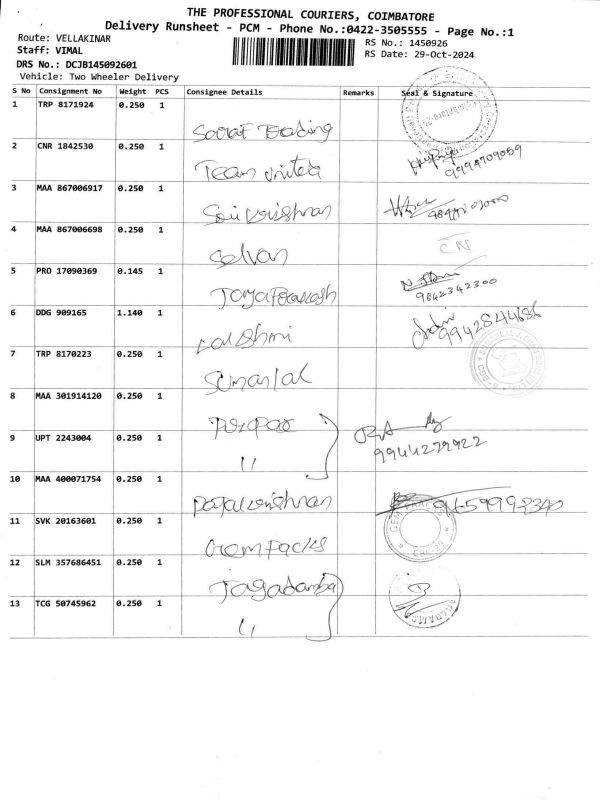 THE PROFESSIONAL COURIERS, COIMBATORE
Delivery Runsheet - PCM - Phone No.:0422-3505555 - Page No.:1
Route: VELLAKINAR
Staff: VIMAL
DRS No.: DCJB145092601
Vehicle: Two Wheeler Delivery
RS No.: 1450926
RS Date: 29-Oct-2024
S No Consignment No Weight PCS Consignee Details Remarks Seal & Signature
1 TRP 8171924 0.250 1
2 CNR 1842530 0.250 1 Team United 9994709059
3 MAA 867006917 0.250 1 Sai krishnan
4 MAA 867006698 0.250 1 Selvan CN
5 PRO 17090369 0.145 1 9842342300
6 DDG 909165 1.140 1 Lakshmi 9942844686
7 TRP 8170223 0.250 1
8 MAA 301914120 0.250 1
9 UPT 2243004 0.250 1 " 9944279922
10 MAA 400071754 0.250 1
11 SVK 20163601 0.250 1 Gem Packs
12 SLM 357686451 0.250 1 Jagadamba
13 TCG 50745962 0.250 1 "